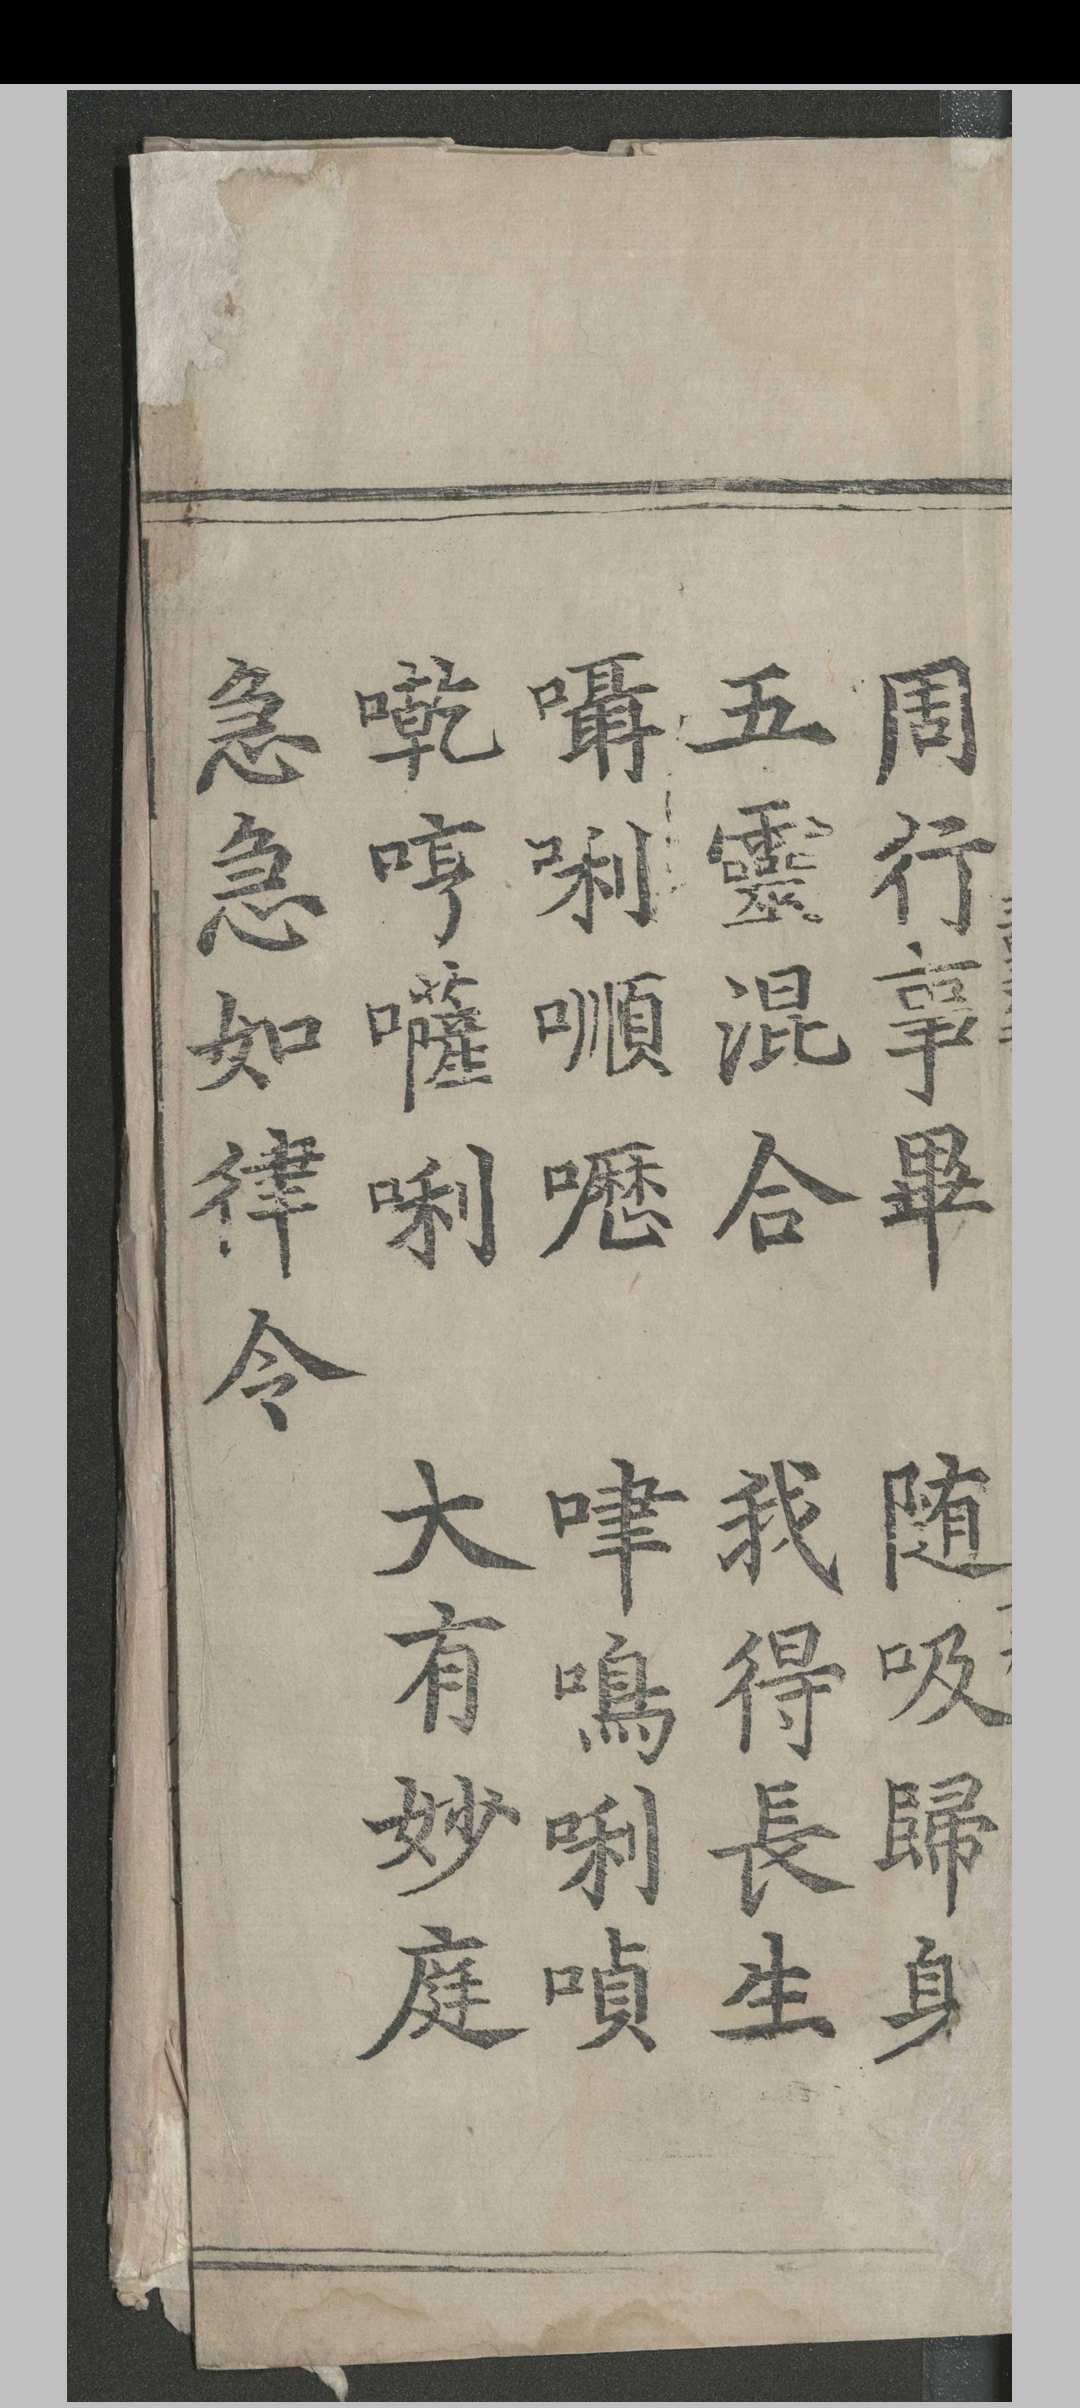 周行事畢　随吸歸身
五靈混合　我得長生
囁唎㗔嚦　嘩鳴唎嗊
嚫哼嚾唎　大有妙庭
急急如律令